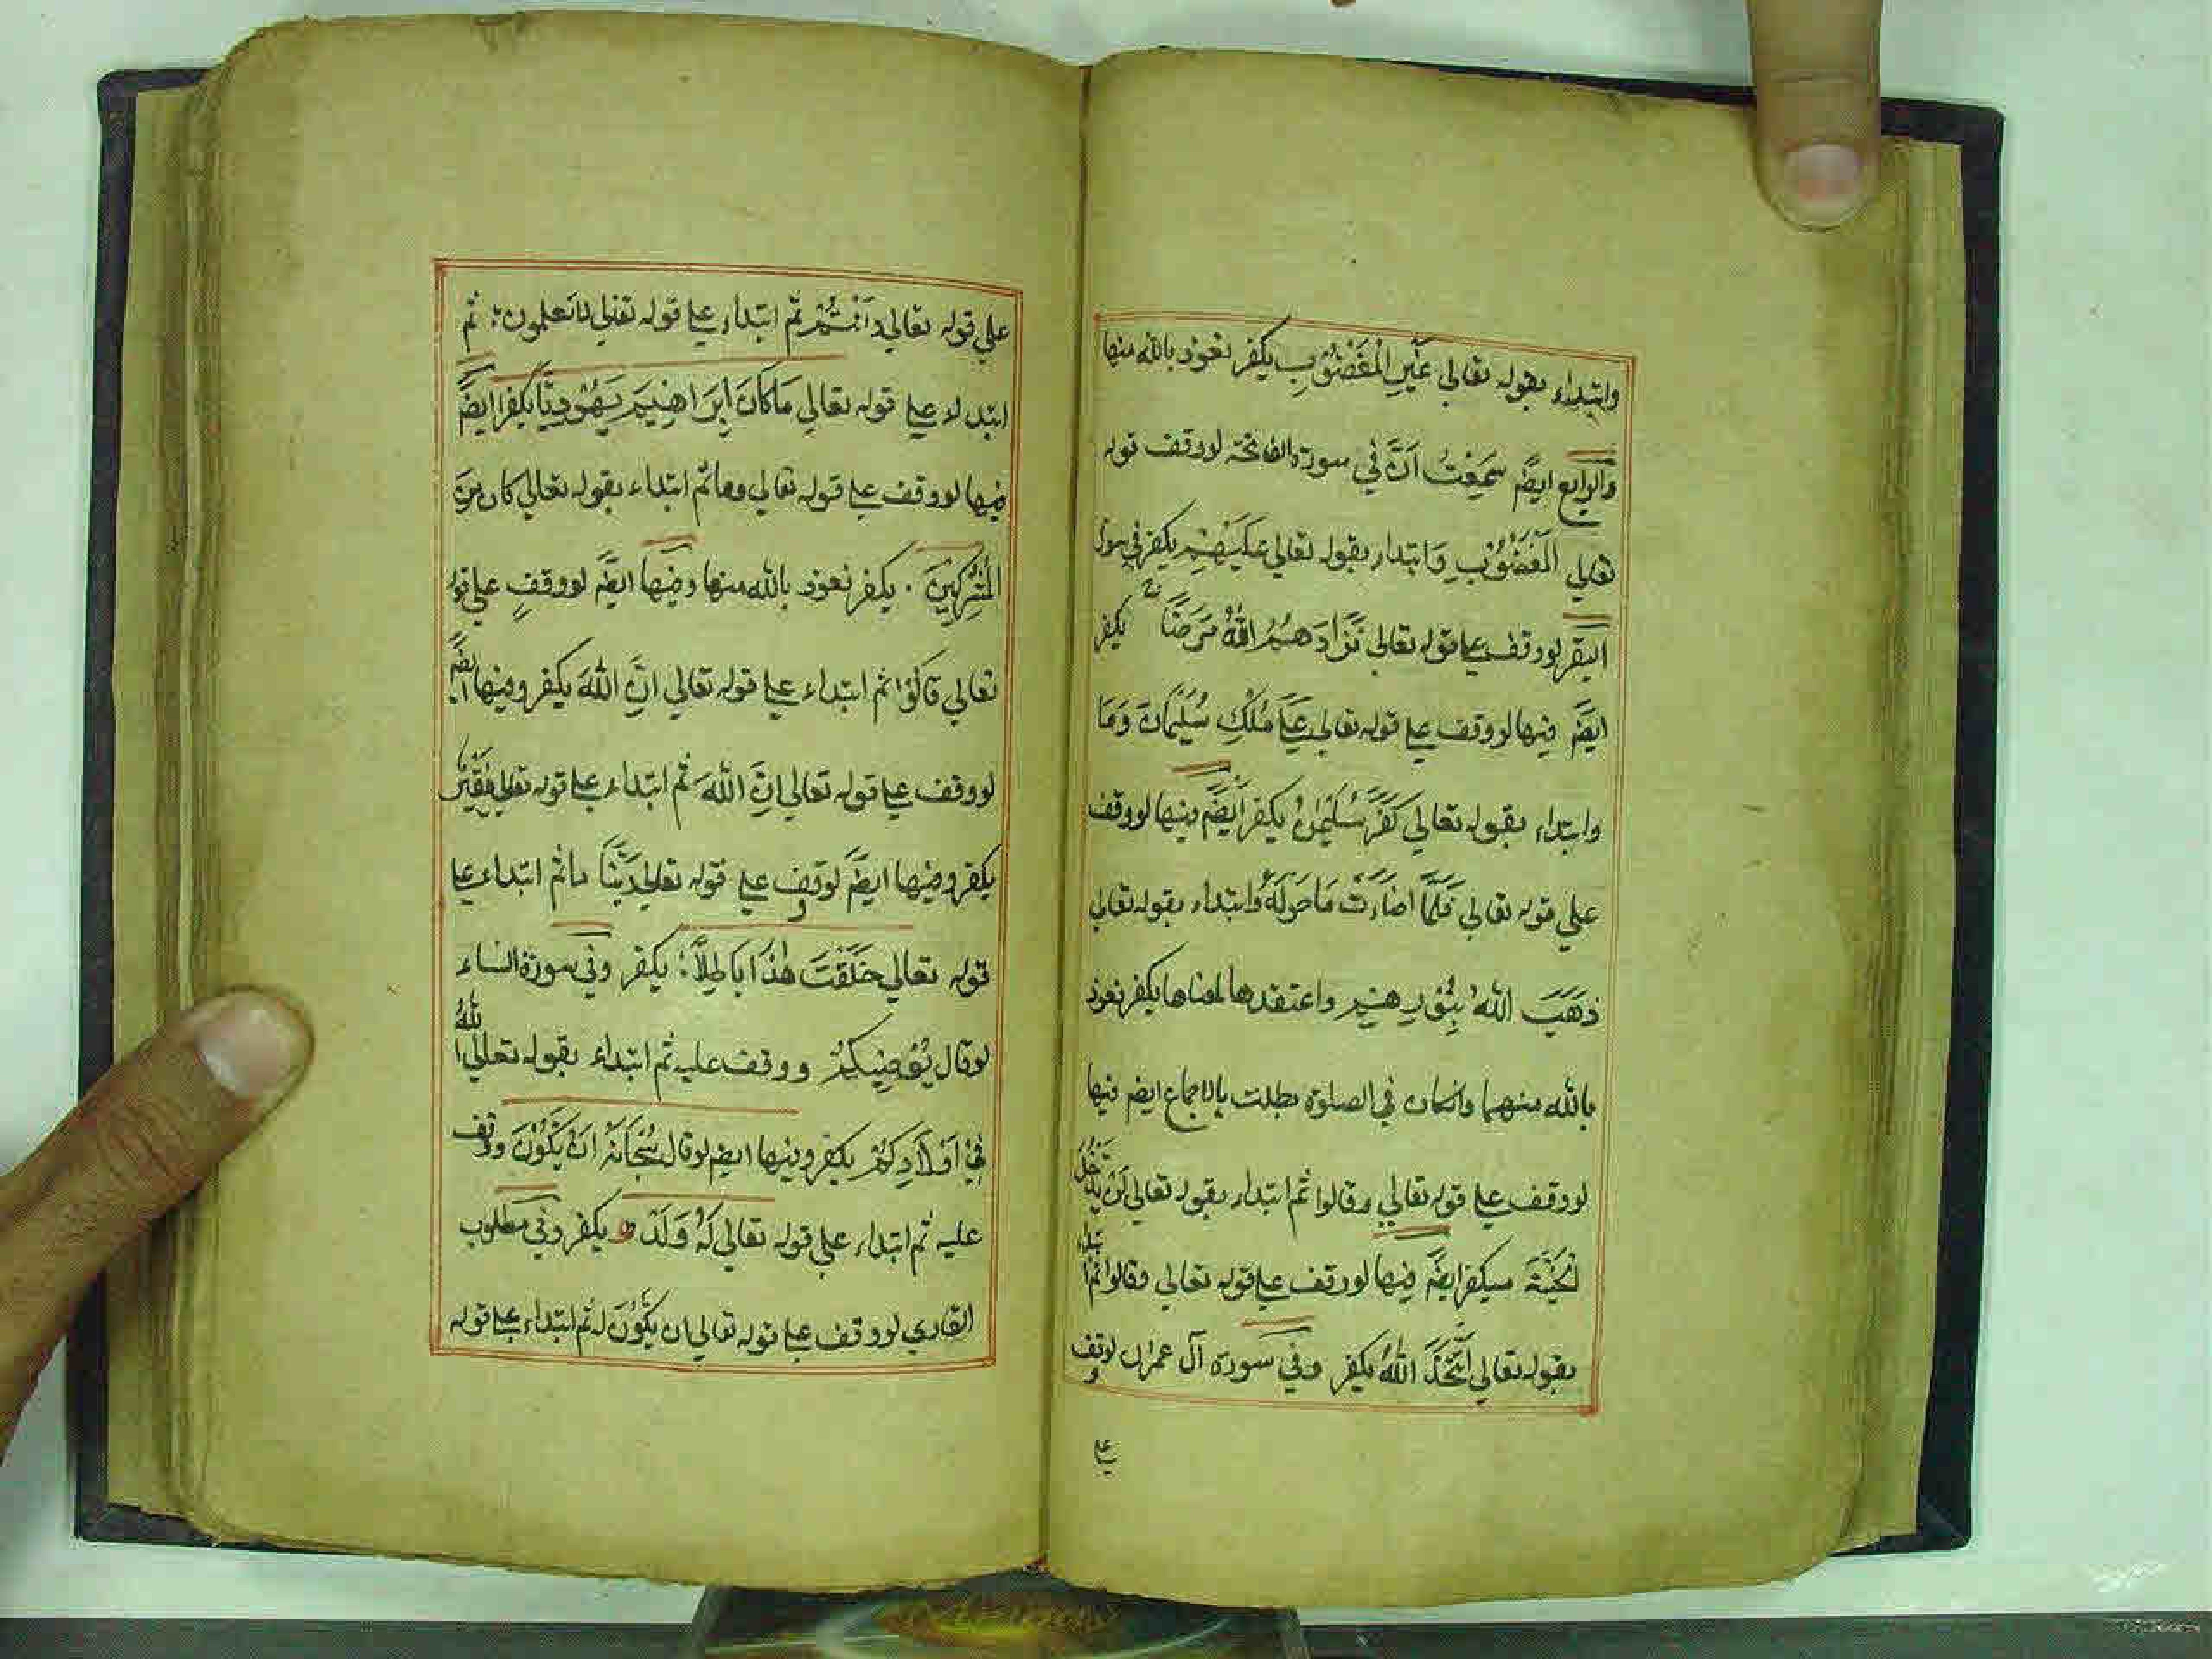 وابتداء بقوله تعالى غَيْرِ الْمَغْضُوْبِ يكفر نعوذ بالله منها
والرابع ايضً سَمِعْتُ اَنَّ في سورة الفاتحة لووقف قوله
تعالي اَلْمَغْضُوْبِ وَابتداء بقوله تعالي عَلَيْهِمْ يكفر في سورة
البقر لووقف علي قوله تعالى فَزَادَهُمُ اللّٰهُ مَرَضًا يكفر
ايضً فيها لووقف علي قوله تعالى عَلَيٰ مُلْكِ سُلَيْمَانَ وَمَا
وابتداء بقوله تعالي كَفَرَ سُلَيْمٰنُ يكفر ايضً فيها لووقف
علي قوله تعالي فَلَمَّا اَضَآءَتْ مَا حَوْلَهٗ وابتداء بقوله تعالى
ذَهَبَ اللّٰهُ بِنُوْرِهِمْ واعتقدها لمعناها يكفر نعوذ
بالله منها وانكان في الصلوة بطلت بالاجماع ايضً فيها
لووقف علي قوله تعالي وقالوا ثم ابتداء بقوله تعالي لَنْ يَدْخُلَ
الْجَنَّةَ سيكفر ايضً فيها لووقف علي قوله تعالي وقالوا ثم ابتداء
بقوله تعالي اتَّخَذَ اللّٰهُ يكفر وفي سورة آل عمران لووقف
علي
علي قوله تعالي وَاَنْتُمْ ثم ابتداء علي قوله تعالي لا تعلمون ثم
ابتداء علي قوله تعالي مَاكَانَ اِبْرَاهِيْمَ يَهُوْدِيًّا يكفر ايضً
فيها لووقف علي قوله تعالي وما ثم ابتداء بقوله تعالي كان مِنَ
الْمُشْرِكِيْنَ يكفر نعوذ بالله منها وفيها ايضً لووقف علي قوله
تعالي قَالُوْا ثم ابتداء علي قوله تعالي اِنَّ اللّٰهَ يكفر وفيها ايضً
لووقف علي قوله تعالي اِنَّ اللّٰهَ ثم ابتداء علي قوله تعالي فَقِيْرٌ
يكفر وفيها ايضً لووقف علي قوله تعالي رَبَّنَا ما ثم ابتداء علي
قوله تعالي خَلَقْتَ هٰذَا بَاطِلًا يكفر وفي سورة النساء
لوقال يُوْصِيْكُمُ ووقف عليه ثم ابتداء بقوله تعالي اللّٰهُ
فِيْ اَوْلَادِكُمْ يكفر وفيها ايضً لوقال سُبْحَانَهٗ اَنْ يَّكُوْنَ ووقف
عليه ثم ابتداء علي قوله تعالي لَهٗ وَلَدٌ يكفر وفي مطلوب
القاري لووقف علي قوله تعالي ان يَّكُوْنَ له ثم ابتداء علي قوله